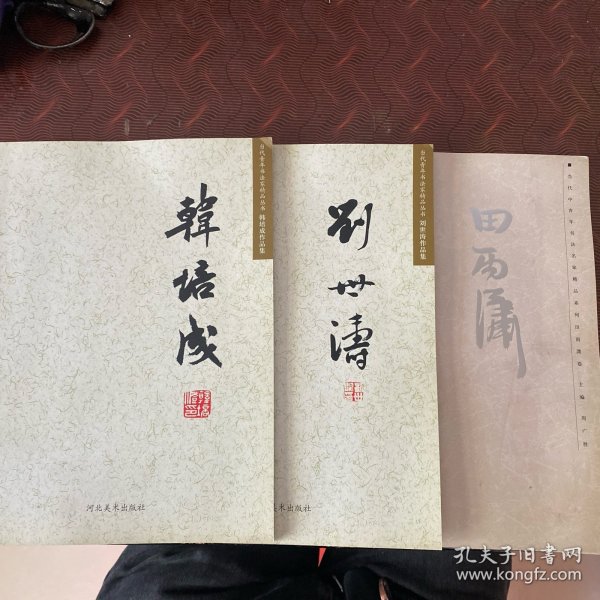 韓培成
当代青年书法家精品丛书 韩培成作品集
河北美术出版社
劉世濤
当代青年书法家精品丛书 刘世涛作品集
美术出版社
田雨潇
当代中青年书法名家精品系列田雨潇卷 主编
孔夫子旧书网
www.kongfz.com